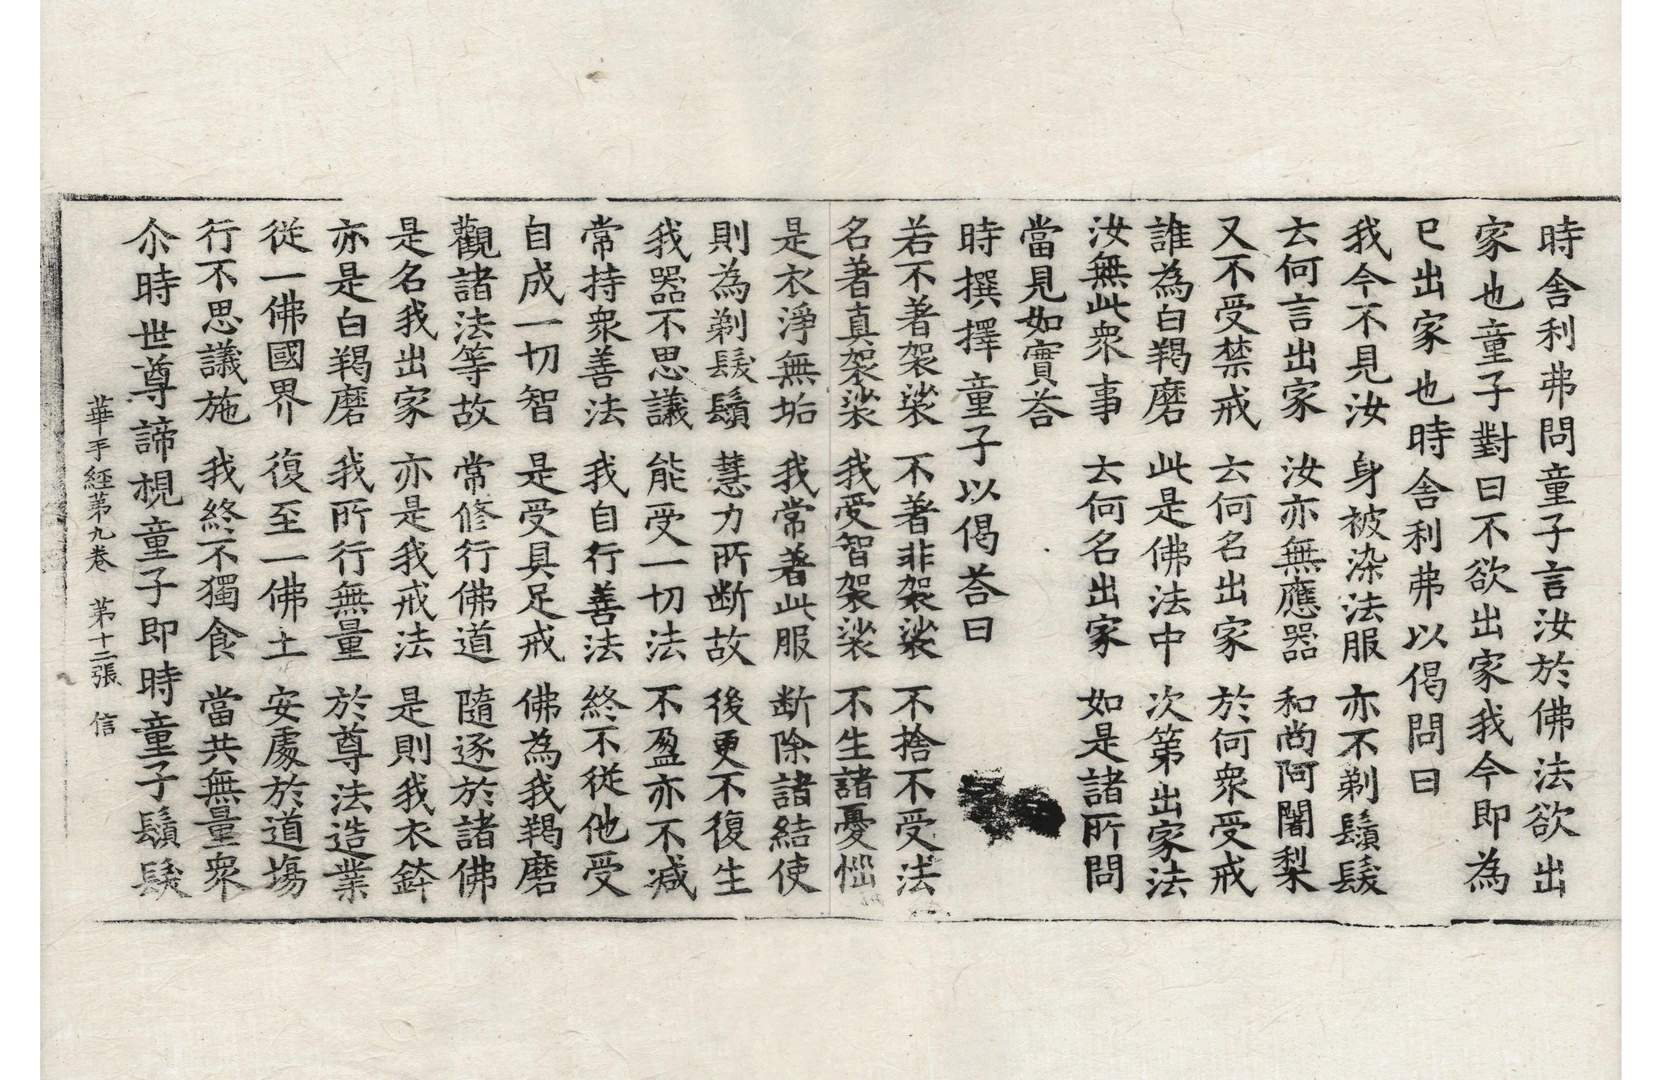 時舍利弗問童子言汝於佛法欲出
家也童子對曰不欲出家我今即為
已出家也時舍利弗以偈問曰
我今不見汝　身被染法服　亦不剃鬚髮
云何言出家　汝亦無應器　和尚阿闍梨
又不受禁戒　云何名出家　於何衆受戒
誰為白羯磨　此是佛法中　次第出家法
汝無此衆事　云何名出家　如是諸所問
當見如實荅
時撰擇童子以偈荅曰
若不著袈裟　不著非袈裟　不捨不受法
名著真袈裟　我受智袈裟　不生諸憂惱
是衣淨無垢　我常著此服　断除諸結使
則為剃髮鬚　慧力所断故　後更不復生
我器不思議　能受一切法　不盈亦不減
常持衆善法　我自行善法　終不從他受
自成一切智　是受具足戒　佛為我羯磨
觀諸法等故　常修行佛道　隨逐於諸佛
是名我出家　亦是我戒法　是則我衣鉢
亦是白羯磨　我所行無量　於尊法造業
從一佛國界　復至一佛土　安處於道場
行不思議施　我終不獨食　當共無量衆
尒時世尊諦視童子即時童子鬚髮
華手經第九卷　第十二張　信